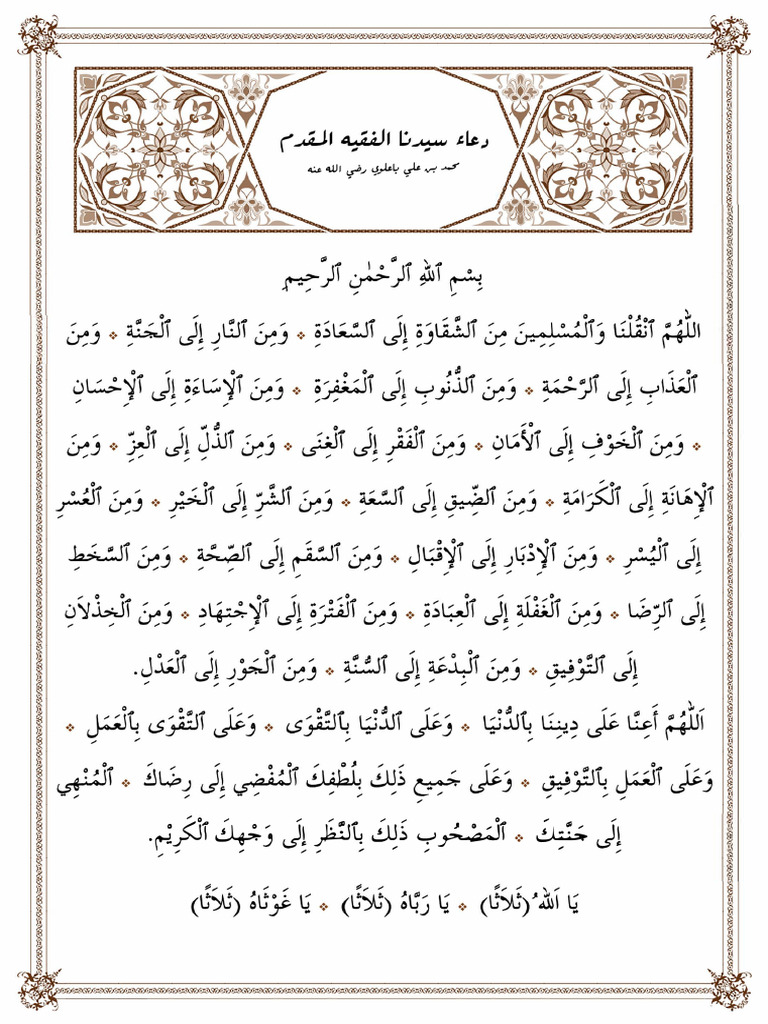 دعاء سيدنا الفقيه المقدم
محمد بن علي باعلوي رضي الله عنه
بِسْمِ ٱللهِ ٱلرَّحْمٰنِ ٱلرَّحِيمِ
اللّٰهُمَّ ٱنْقُلْنَا وَٱلْمُسْلِمِينَ مِنَ ٱلشَّقَاوَةِ إِلَى ٱلسَّعَادَةِ ❖ وَمِنَ ٱلنَّارِ إِلَى ٱلْجَنَّةِ ❖ وَمِنَ
ٱلْعَذَابِ إِلَى ٱلرَّحْمَةِ ❖ وَمِنَ ٱلذُّنُوبِ إِلَى ٱلْمَغْفِرَةِ ❖ وَمِنَ ٱلْإِسَاءَةِ إِلَى ٱلْإِحْسَانِ
❖ وَمِنَ ٱلْخَوْفِ إِلَى ٱلْأَمَانِ ❖ وَمِنَ ٱلْفَقْرِ إِلَى ٱلْغِنَى ❖ وَمِنَ ٱلذُّلِّ إِلَى ٱلْعِزِّ ❖ وَمِنَ
ٱلْإِهَانَةِ إِلَى ٱلْكَرَامَةِ ❖ وَمِنَ ٱلضِّيقِ إِلَى ٱلسَّعَةِ ❖ وَمِنَ ٱلشَّرِّ إِلَى ٱلْخَيْرِ ❖ وَمِنَ ٱلْعُسْرِ
إِلَى ٱلْيُسْرِ ❖ وَمِنَ ٱلْإِدْبَارِ إِلَى ٱلْإِقْبَالِ ❖ وَمِنَ ٱلسَّقَمِ إِلَى ٱلصِّحَّةِ ❖ وَمِنَ ٱلسَّخَطِ
إِلَى ٱلرِّضَا ❖ وَمِنَ ٱلْغَفْلَةِ إِلَى ٱلْعِبَادَةِ ❖ وَمِنَ ٱلْفَتْرَةِ إِلَى ٱلْإِجْتِهَادِ ❖ وَمِنَ ٱلْخِذْلَانِ
إِلَى ٱلتَّوْفِيقِ ❖ وَمِنَ ٱلْبِدْعَةِ إِلَى ٱلسُّنَّةِ ❖ وَمِنَ ٱلْجَوْرِ إِلَى ٱلْعَدْلِ.
اَللّٰهُمَّ أَعِنَّا عَلَى دِينِنَا بِٱلدُّنْيَا ❖ وَعَلَى ٱلدُّنْيَا بِٱلتَّقْوَى ❖ وَعَلَى ٱلتَّقْوَى بِٱلْعَمَلِ ❖
وَعَلَى ٱلْعَمَلِ بِٱلتَّوْفِيقِ ❖ وَعَلَى جَمِيعِ ذَلِكَ بِلُطْفِكَ ٱلْمُفْضِي إِلَى رِضَاكَ ❖ ٱلْمُنْهِي
إِلَى جَنَّتِكَ ❖ ٱلْمَصْحُوبِ ذَلِكَ بِٱلنَّظَرِ إِلَى وَجْهِكَ ٱلْكَرِيْمِ.
يَا اَللهُ (ثَلَاثًا) ❖ يَا رَبَّاهُ (ثَلَاثًا) ❖ يَا غَوْثَاهُ (ثَلَاثًا)